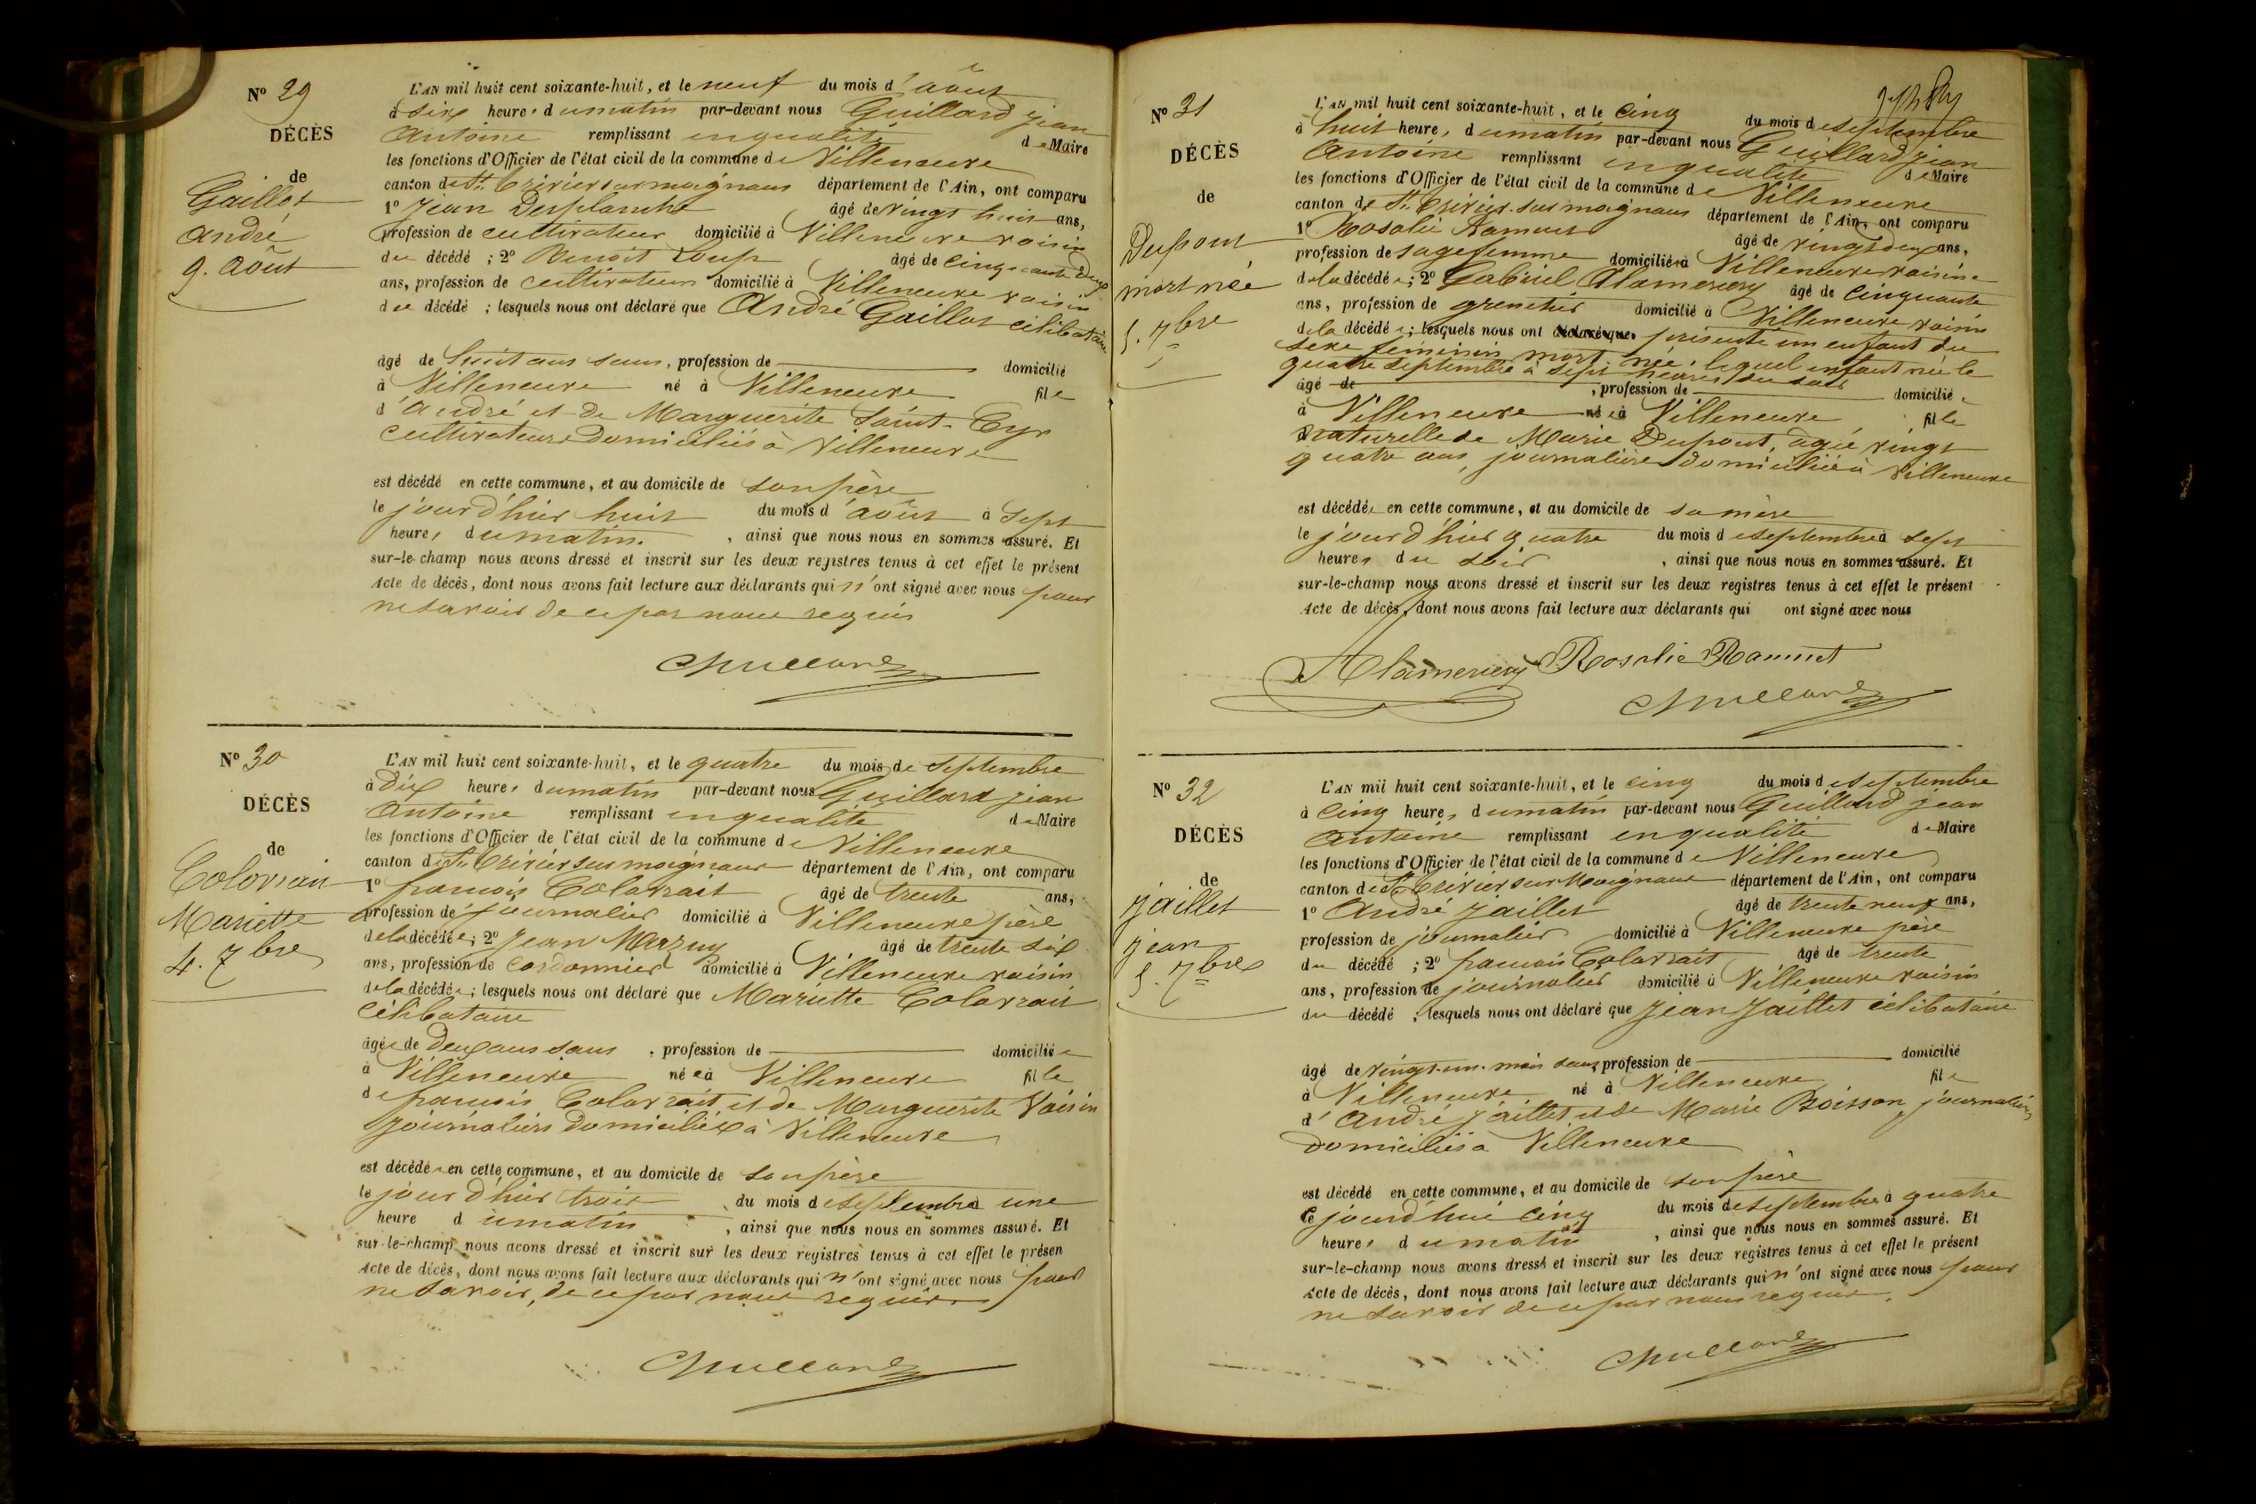 Nº 29
DÉCÈS
de
Gaillot
André
9. Août
L'AN mil huit cent soixante-huit, et le neuf du mois d'août
à six heures du matin par-devant nous Guillard Jean
Antoine remplissant en qualité de Maire
les fonctions d'Officier de l'état civil de la commune de Villeneuve
canton de St. Trivier sur moignans département de l'Ain, ont comparu
1º Jean Desplanche âgé de vingt huit ans,
profession de cultivateur domicilié à Villeneuve voisin
du décédé ; 2º Benoit Loup âgé de cinquante deux
ans, profession de cultivateur domicilié à Villeneuve voisin
du décédé ; lesquels nous ont déclaré que André Gaillot célibataire
âgé de huit ans sans, profession de domicilié
à Villeneuve né à Villeneuve fils
d'André et de Marguerite Saint-Cyr
cultivateurs domiciliés à Villeneuve
est décédé en cette commune, et au domicile de son père
le jour d'hier huit du mois d'août à sept
heures du matin, ainsi que nous nous en sommes assuré. Et
sur-le-champ nous avons dressé et inscrit sur les deux registres tenus à cet effet le présent
Acte de décès, dont nous avons fait lecture aux déclarants qui n'ont signé avec nous pour
ne savoir de ce par nous requis
Guillard
Nº 30
DÉCÈS
de
Colovrait
Mariette
4. 7bre
L'AN mil huit cent soixante-huit, et le quatre du mois de septembre
à dix heures du matin par-devant nous Guillard Jean
Antoine remplissant en qualité de Maire
les fonctions d'Officier de l'état civil de la commune de Villeneuve
canton de St. Trivier sur moignans département de l'Ain, ont comparu
1º françois Colovrait âgé de trente ans,
profession de journalier domicilié à Villeneuve père
de la décédée ; 2º Jean Mazuy âgé de trente six
ans, profession de cordonnier domicilié à Villeneuve voisin
de la décédée ; lesquels nous ont déclaré que Mariette Colovrait
célibataire
âgée de deux ans sans, profession de domiciliée
à Villeneuve née à Villeneuve fille
de françois Colovrait et de Marguerite Voisin
journaliers domiciliés à Villeneuve
est décédée en cette commune, et au domicile de son père
le jour d'hier trois du mois de septembre à une
heure du matin, ainsi que nous nous en sommes assuré. Et
sur-le-champ nous avons dressé et inscrit sur les deux registres tenus à cet effet le présen
Acte de décès, dont nous avons fait lecture aux déclarants qui n'ont signé avec nous pour
ne savoir, de ce par nous requis
Guillard
Nº 31
DÉCÈS
de
Dupont
mort née
5. 7bre
L'AN mil huit cent soixante-huit, et le cinq du mois de septembre
à huit heures du matin par-devant nous Guillard Jean
Antoine remplissant en qualité de Maire
les fonctions d'Officier de l'état civil de la commune de Villeneuve
canton de St. Trivier sur moignans département de l'Ain, ont comparu
1º Rosalie Ramuet âgé de vingt deux ans,
profession de sage femme domiciliée à Villeneuve voisine
de la décédée ; 2º Gabriel Alamercery âgé de cinquante
ans, profession de grenetier domicilié à Villeneuve voisin
de la décédée ; lesquels nous ont déclaré que présenté un enfant du
sexe féminin mort-née, lequel enfant née le
quatre septembre à sept heures du soir
âgé de , profession de domiciliée
à Villeneuve née à Villeneuve fille
naturelle de Marie Dupont, âgée vingt
quatre ans, journalière domiciliée à Villeneuve
est décédée en cette commune, et au domicile de sa mère
le jour d'hier quatre du mois de septembre à sept
heures du soir, ainsi que nous nous en sommes assuré. Et
sur-le-champ nous avons dressé et inscrit sur les deux registres tenus à cet effet le présent
Acte de décès, dont nous avons fait lecture aux déclarants qui ont signé avec nous
Alamercery Rosalie Ramuet
Guillard
Nº 32
DÉCÈS
de
Jaillet
Jean
5. 7bre
L'AN mil huit cent soixante-huit, et le cinq du mois de septembre
à cinq heures du matin par-devant nous Guillard Jean
Antoine remplissant en qualité de Maire
les fonctions d'Officier de l'état civil de la commune de Villeneuve
canton de St. Trivier sur Moignans département de l'Ain, ont comparu
1º André Jaillet âgé de trente neuf ans,
profession de journalier domicilié à Villeneuve père
du décédé ; 2º françois Colovrait âgé de trente
ans, profession de journalier domicilié à Villeneuve voisin
du décédé ; lesquels nous ont déclaré que Jean Jaillet célibataire
âgé de vingt-un mois sans profession de domicilié
à Villeneuve né à Villeneuve fils
d'André Jaillet et de Marie Boisson journaliers
domiciliés à Villeneuve
est décédé en cette commune, et au domicile de son père
le jourd'hui cinq du mois de septembre à quatre
heures du matin, ainsi que nous nous en sommes assuré. Et
sur-le-champ nous avons dressé et inscrit sur les deux registres tenus à cet effet le présent
Acte de décès, dont nous avons fait lecture aux déclarants qui n'ont signé avec nous pour
ne savoir de ce par nous requis.
Guillard